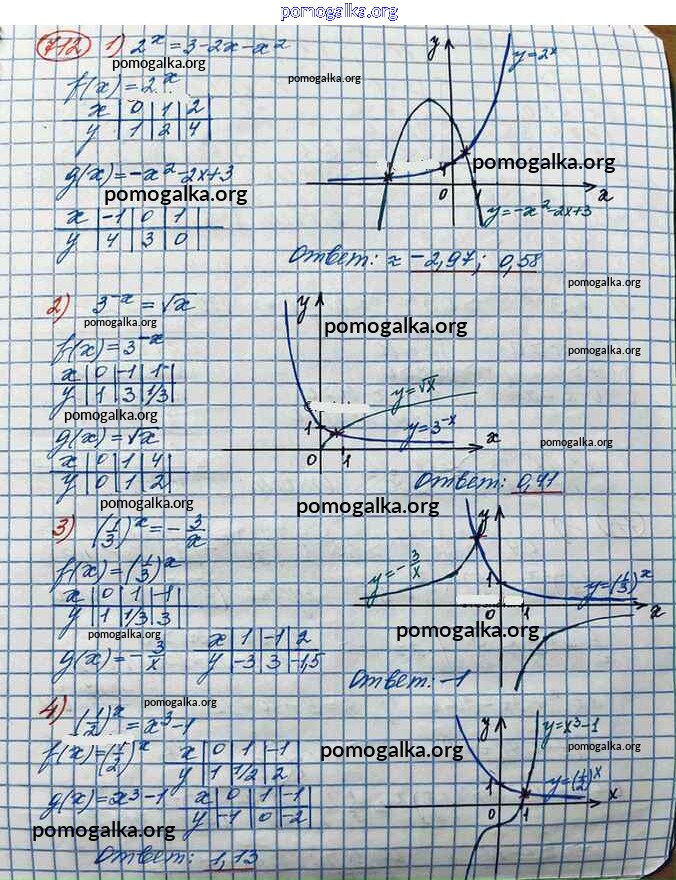 pomogalka.org
712 1) 2^x = 3-2x-x²
pomogalka.org
pomogalka.org
f(x)=2^x
x | 0 | 1 | 2
y | 1 | 2 | 4
y
y=2^x
1
0
1
x
y=-x²-2x+3
pomogalka.org
g(x)=-x²-2x+3
pomogalka.org
x | -1 | 0 | 1
y | 4 | 3 | 0
Ответ: ≈ -2,97; 0,58
pomogalka.org
2) 3^-x = √x
pomogalka.org
pomogalka.org
pomogalka.org
f(x)=3^-x
x | 0 | -1 | 1
y | 1 | 3 | 1/3
pomogalka.org
y
y=√x
y=3^-x
1
0
1
x
g(x)=√x
pomogalka.org
x | 0 | 1 | 4
y | 0 | 1 | 2
Ответ: 0,41
pomogalka.org
3) (1/3)^x = -3/x
f(x)=(1/3)^x
x | 0 | 1 | -1
y | 1 | 1/3 | 3
y
y=-3/x
1
y=(1/3)^x
0
1
x
pomogalka.org
pomogalka.org
g(x)=-3/x
x | 1 | -1 | 2
y | -3 | 3 | -1,5
Ответ: -1
4) (1/2)^x = x³-1
pomogalka.org
f(x)=(1/2)^x
x | 0 | 1 | -1
y | 1 | 1/2 | 2
pomogalka.org
y
y=x³-1
pomogalka.org
y=(1/2)^x
1
0
1
x
g(x)=x³-1
x | 0 | 1 | -1
y | -1 | 0 | -2
pomogalka.org
pomogalka.org
Ответ: 1,13